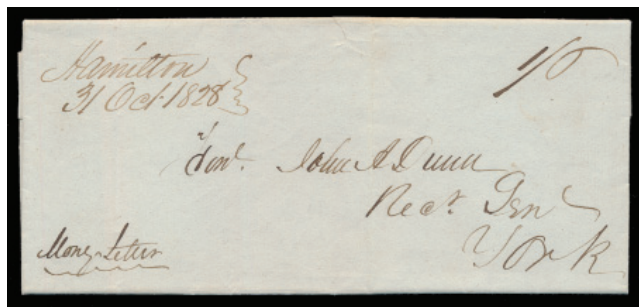 Hamilton
31 Oct. 1828
1/6
Honl. John H Dunn
Recr. Genl
York
Money Letter